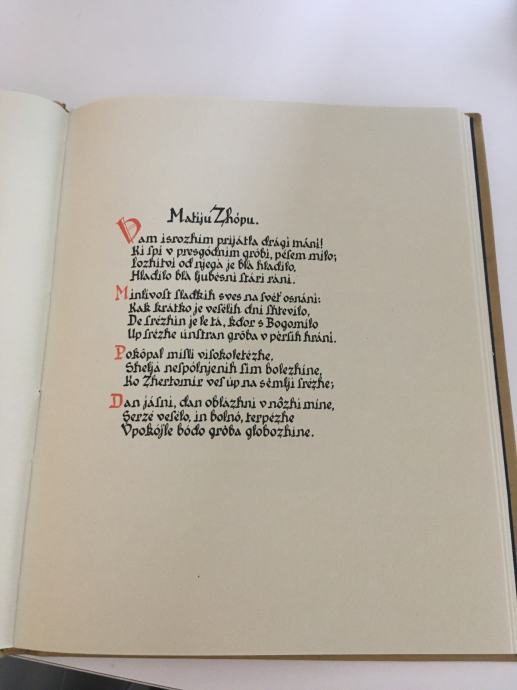 Matiju Zhópu.
Vam isrozhim prijátla drági máni!
Ki spi v presgódnim gróbi, pésem milo;
Lozhitvi od njega je blá hladílo,
Hladílo blá ljubésni stári ráni.
Minlívost sladkih sves na svét' osnáni:
Kak krátko je vesélih dni shtevílo,
De srézhin je le tá, kdor s Bogomilo
Up srézhe únstran gróba v pérsih hráni.
Pokôpal misli visokoletézhe,
Sheljá nespólnjenih sim bolezhíne,
Ko Zhertomír ves úp na sêmlji srézhe;
Dan jásni, dan oblázhni v nôzhi mine,
Serzé veselo, in bolnó, terpézhe
Vpokójle bódo grôba globozhíne.